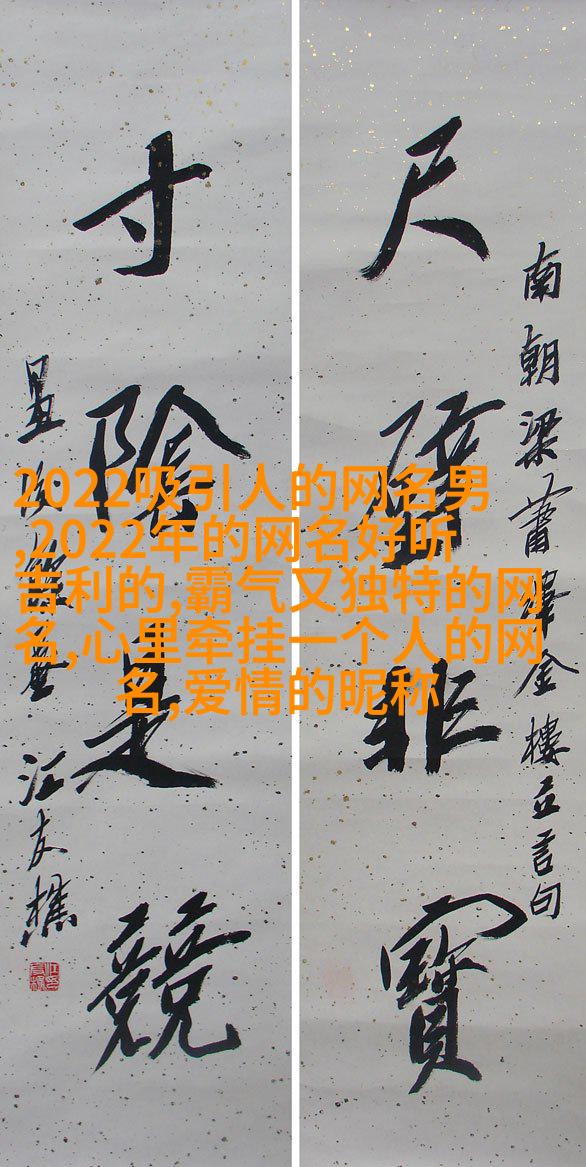 尺璧非寶
南朝梁蕭繹金樓立言句
寸陰是競
汪友樵
2022吸引人的网名男
,2022年的网名好听
吉利的,霸气又独特的网
名,心里牵挂一个人的网
名,爱情的昵称